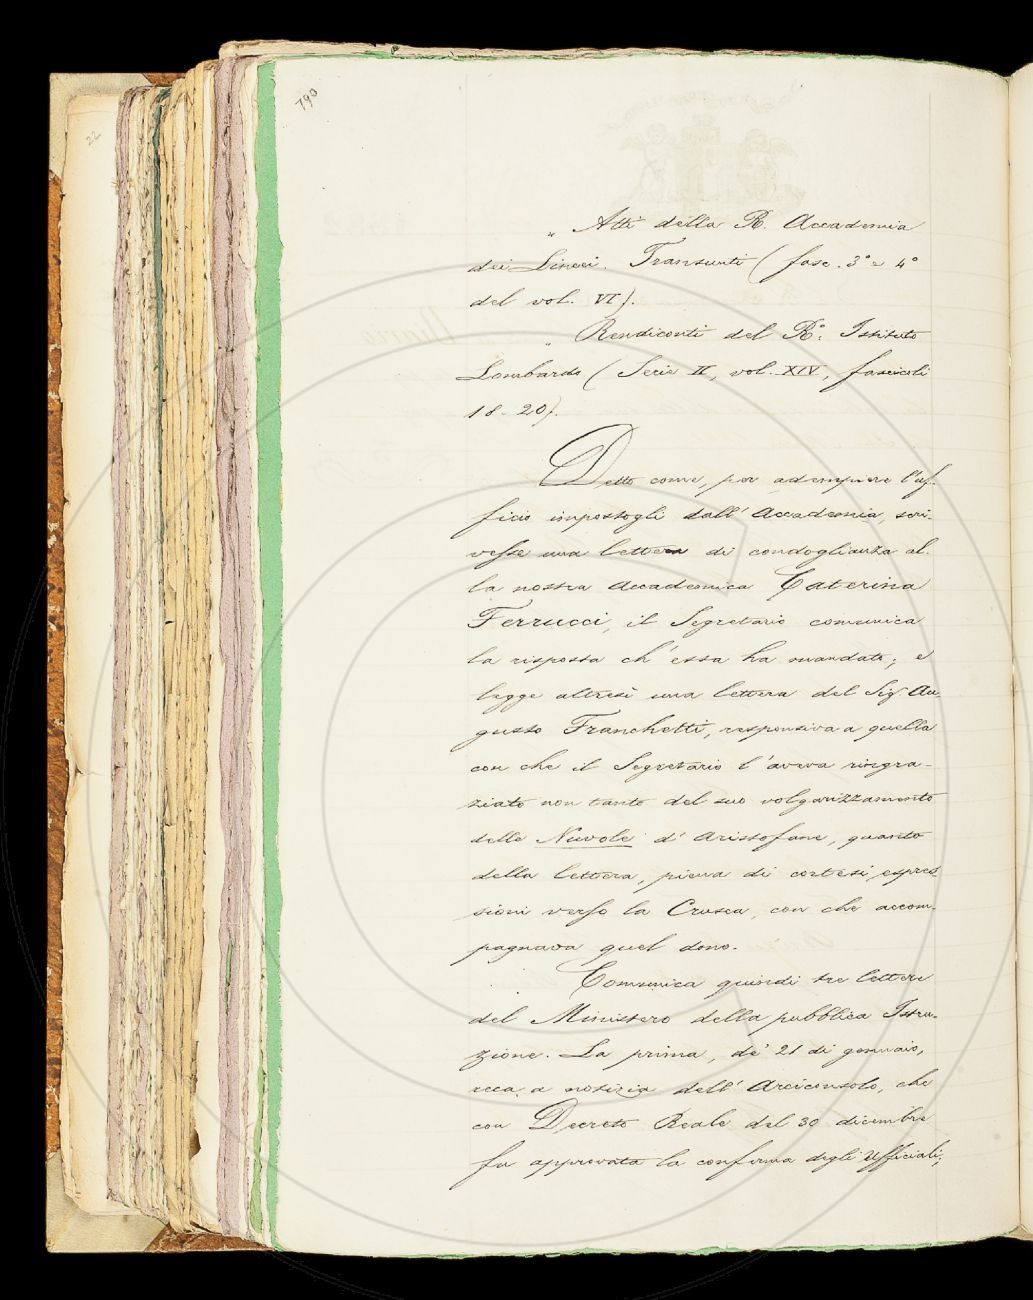 790
22
„ Atti della R. Accademia
dei Lincei. Transunti (fasc. 3° e 4°
del vol. VI).
„ Rendiconti del R.° Istituto
Lombardo (Serie II, vol. XIV, fascicoli
18-20).
Detto come, per adempiere l'uf-
ficio impostogli dall'Accademia, scri-
vesse una lettera di condoglianza al-
la nostra Accademica Caterina
Ferrucci, il Segretario comunica
la risposta ch'essa ha mandato; e
legge altresì una lettera del Sig. Au
gusto Franchetti, responsiva a quella
con che il Segretario l'aveva ringra-
ziato non tanto del suo volgarizzamento
delle Nuvole d'Aristofane, quanto
della lettera, piena di cortesi espres
sioni verso la Crusca, con che accom-
pagnava quel dono.
Comunica quindi tre lettere
del Ministero della pubblica Istru-
zione. La prima, de' 21 di gennaio,
reca a notizia dell'Arciconsolo, che
con Decreto Reale del 30 dicembre
fu approvata la conferma degli Ufficiali;